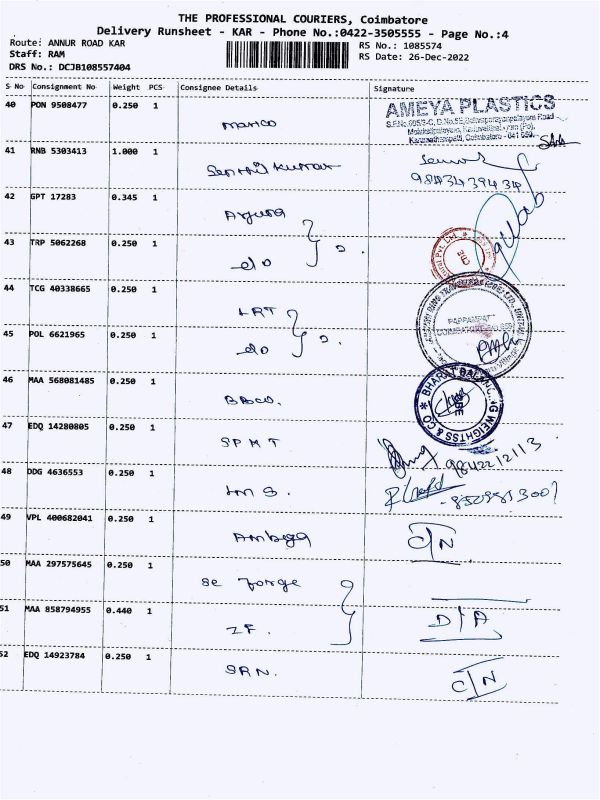 THE PROFESSIONAL COURIERS, Coimbatore
Delivery Runsheet - KAR - Phone No.:0422-3505555 - Page No.:4
Route: ANNUR ROAD KAR
RS No.: 1085574
Staff: RAM
RS Date: 26-Dec-2022
DRS No.: DCJB108557404
S No Consignment No Weight PCS Consignee Details Signature
40 PON 9508477 0.250 1
AMEYA PLASTICS
41 RNB 5303413 1.000 1 Senthil Kumar
9843439434
42 GPT 17283 0.345 1
43 TRP 5062268 0.250 1 do
44 TCG 40338665 0.250 1 LRT
PAPPAMPATTI
45 POL 6621965 0.250 1 do
46 MAA 568081485 0.250 1
BHARAT BALANCING WEIGHTSS & CO
47 EDQ 14280805 0.250 1 SPMT
9842212113
48 DDG 4636553 0.250 1
8529813007
49 VPL 400682041 0.250 1 C/N
50 MAA 297575645 0.250 1 SE Forge
51 MAA 858794955 0.440 1 IF. D/A
52 EDQ 14923784 0.250 1 SRN. C/N